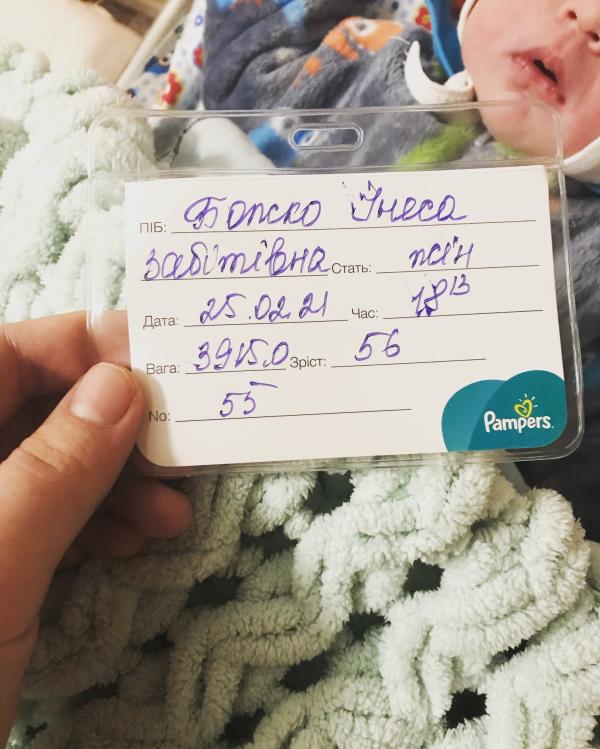 ПІБ: Бопско Інеса
Забітівна Стать: жін
Дата: 25.02.21 Час: 18 13
Вага: 3915.0 Зріст: 56
No: 55
Pampers.